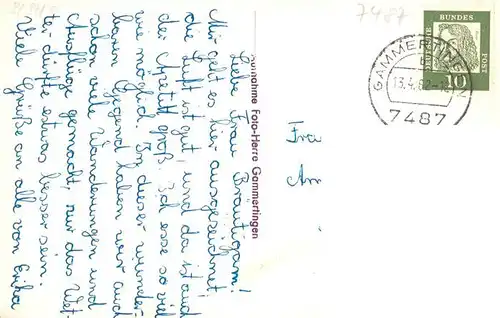 7487
Liebe Frau Bräutigam!
Mir geht es hier ausgezeichnet,
die Luft ist gut, und da ist auch
der Appetit groß. Ich esse so viel
wie möglich. In dieser wunder-
baren Gegend haben wir auch
schon viele Wanderungen und
Ausflüge gemacht, nur das Wet-
ter dürfte etwas besser sein.
Viele Grüße an alle von Erika
Aufnahme Foto-Herre Gammertingen
Frau
An
GAMMERTINGEN
13.4.62-12
7487
DEUTSCHE
BUNDES
POST
10